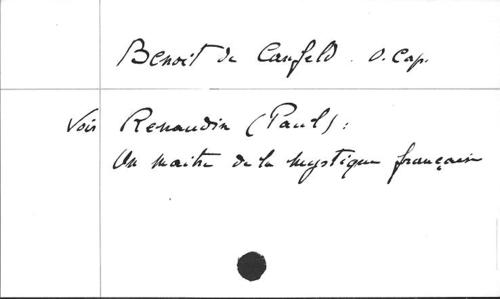 Benoit de Canfeld. O. Cap.
Voir Renaudin (Paul) :
Un maitre de la mystique française